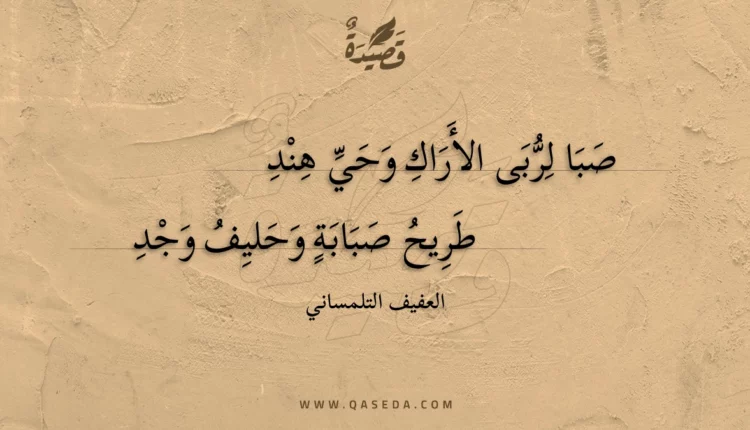 قَصِيدَةٌ
صَبَا لِرُبَى الأَرَاكِ وَحَيِّ هِنْدِ
طَرِيحُ صَبَابَةٍ وَحَلِيفُ وَجْدِ
العفيف التلمساني
WWW.QASEDA.COM